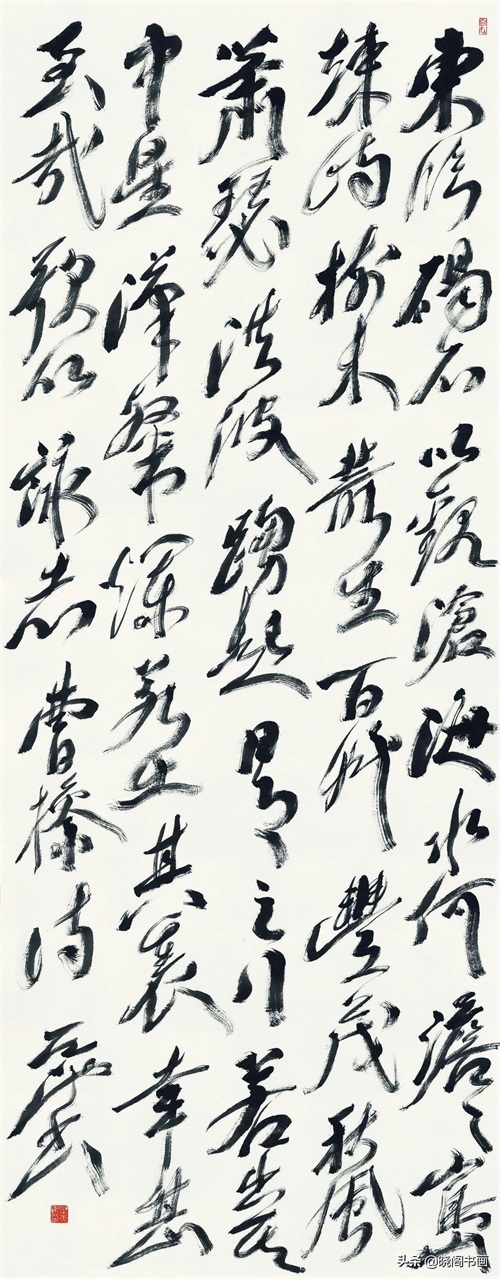 東臨碣石以觀滄海水何澹〻山島
竦峙樹木叢生百草豐茂秋風
蕭瑟洪波踴起日月之行若出其
中星漢粲爛若出其裏幸甚
至哉歌以詠志曹操詩
头条@晓阁书画